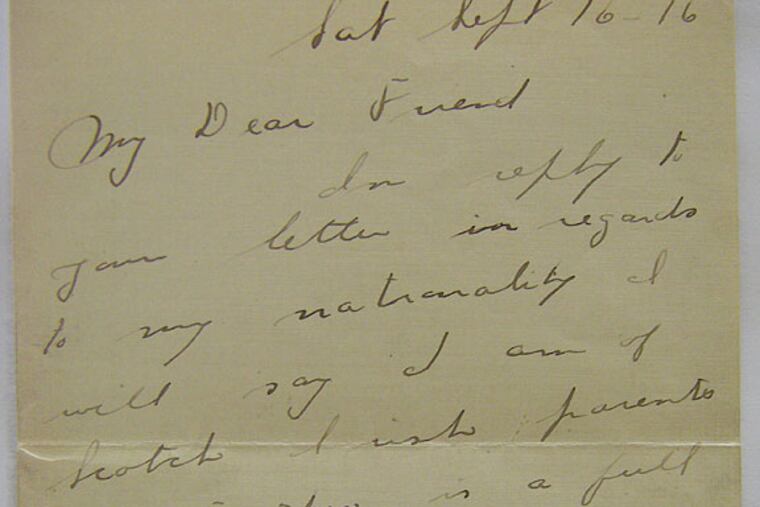 Sat Sept 16-16
My Dear Friend
In reply to
your letter in regards
to my nationality I
will say I am of
Scotch Irish parents
is a full